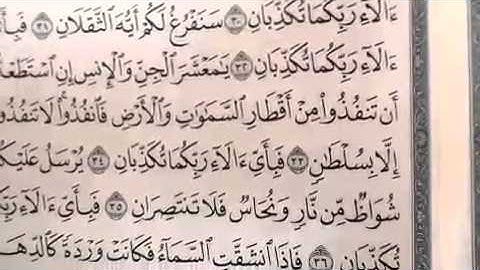 ءَالَآءِ رَبِّكُمَا تُكَذِّبَانِ ٣٠ سَنَفْرُغُ لَكُمْ أَيُّهَ ٱلثَّقَلَانِ ٣١ فَبِأَ
ءَالَآءِ رَبِّكُمَا تُكَذِّبَانِ ٣٢ يَٰمَعْشَرَ ٱلْجِنِّ وَٱلْإِنسِ إِنِ ٱسْتَطَعْ
أَن تَنفُذُوا۟ مِنْ أَقْطَارِ ٱلسَّمَٰوَٰتِ وَٱلْأَرْضِ فَٱنفُذُوا۟ۚ لَا تَنفُذُو
إِلَّا بِسُلْطَٰنٍ ٣٣ فَبِأَىِّ ءَالَآءِ رَبِّكُمَا تُكَذِّبَانِ ٣٤ يُرْسَلُ عَلَيْكُ
شُوَاظٌ مِّن نَّارٍ وَنُحَاسٌ فَلَا تَنتَصِرَانِ ٣٥ فَبِأَىِّ ءَالَآءِ رَبِّ
تُكَذِّبَانِ ٣٦ فَإِذَا ٱنشَقَّتِ ٱلسَّمَآءُ فَكَانَتْ وَرْدَةً كَٱلدِّهَا